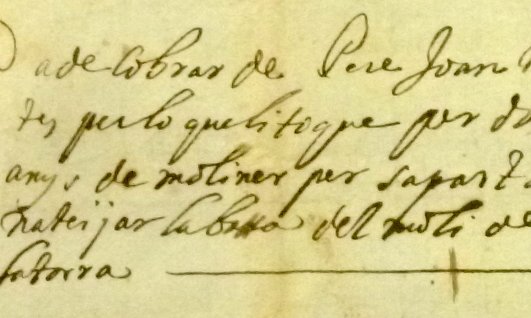 ade Cobrar de Pere Joan
tes perlo quelitoque per d
anys de moliner per sapart
nateijar labassa del moli de
latorra